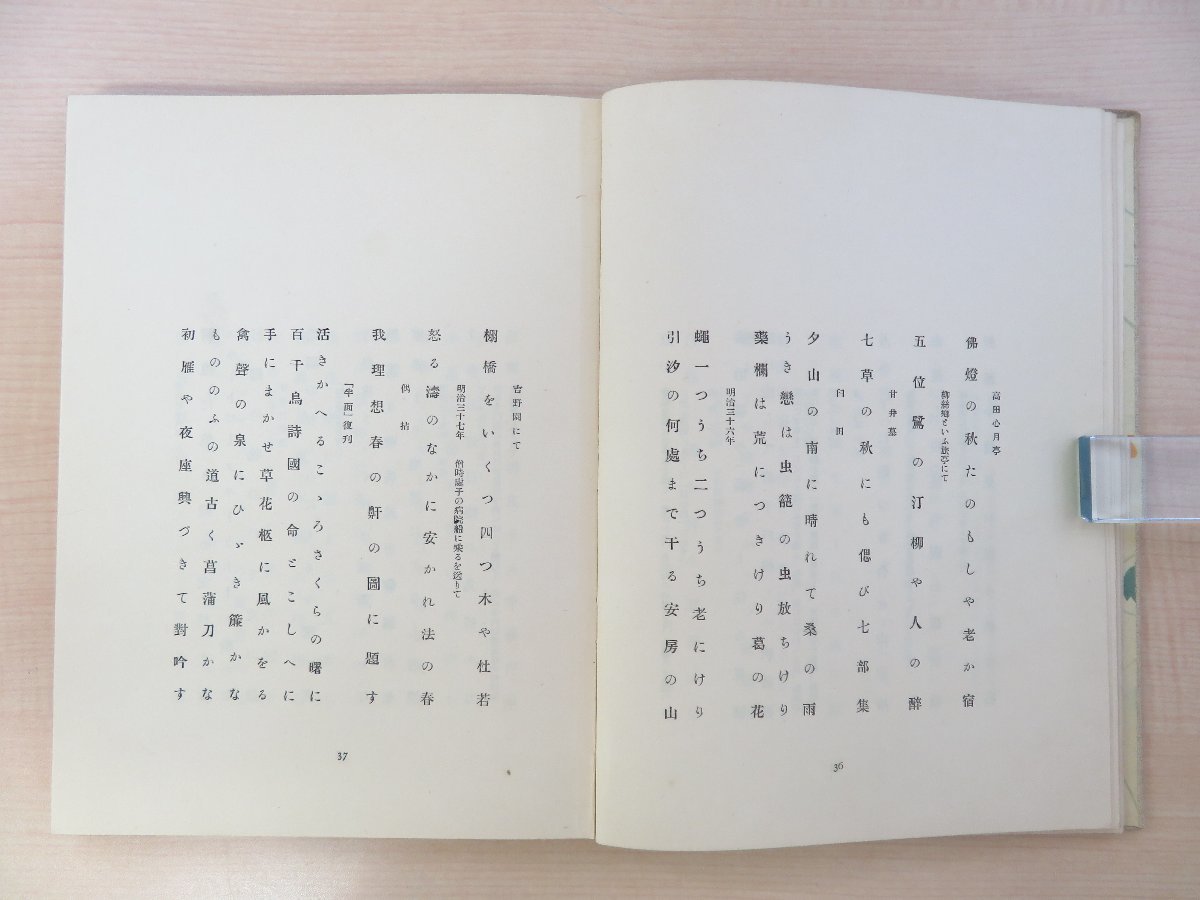 高田心月亭
佛燈の秋たのもしや老か宿
柳絲郷といふ旗亭にて
五位鷺の汀柳や人の醉
甘井墓
七草の秋にも偲び七部集
臼田
夕山の南に晴れて桑の雨
うき戀は虫籠の虫放ちけり
藥欄は荒につきけり葛の花
明治三十六年
蠅一つうち二つうち老にけり
引汐の何處まで干る安房の山
36
吉野園にて
棚橋をいくつ四つ木や杜若
明治三十七年 僧時庵子の病院船に乘るを送りて
怒る濤のなかに安かれ法の春
偶拈
我理想春の鼾の圖に題す
「半面」復刊
活きかへるこゝろさくらの曙に
百千鳥詩國の命とこしへに
手にまかせ草花柩に風かをる
禽聲の泉にひゞき簾かな
もののふの道古く菖蒲刀かな
初雁や夜座興づきて對吟す
37